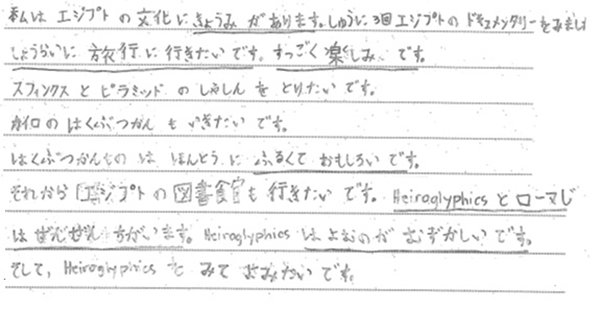 私は エジプト の 文化に きょうみ が あります。しゅうに 3回 エジプトの ドキュメンタリーを みまし
しょうらいに 旅行に 行きたい です。すっごく 楽しみ です。
スフィンクス と ピラミッド の しゃしん を とりたい です。
カイロの はくぶつかん も いきたい です。
はくぶつかんもの は ほんとう に ふるくて おもしろい です。
それから エジプトの 図書館も 行きたい です。Heiroglyphics と ローマじ
は ぜんぜん ちがいます。Heiroglyphics は よむのが むずかしい です。
そして、Heiroglyphics を みて よみたい です。